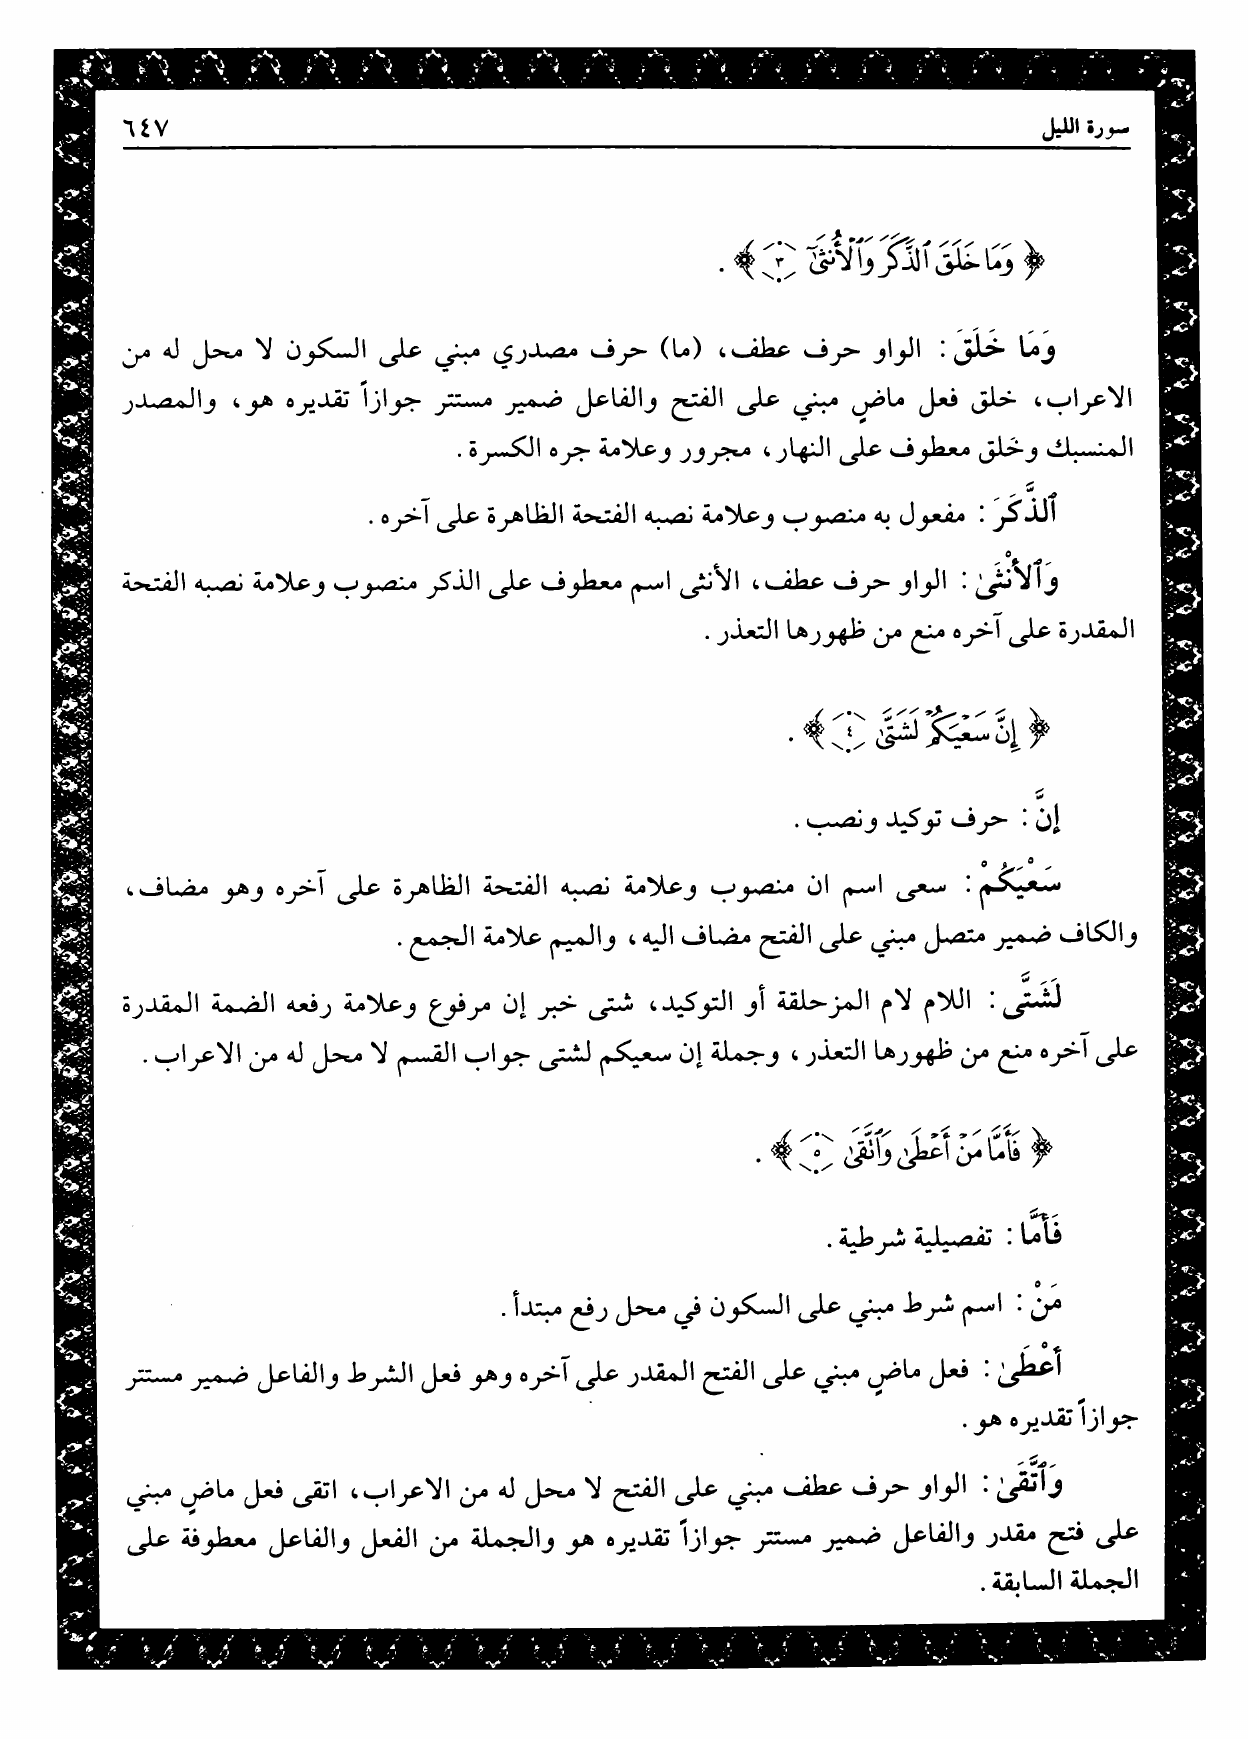 سورة الليل ٦٤٧
﴿ وَمَا خَلَقَ ٱلذَّكَرَ وَٱلْأُنثَىٰٓ ٣ ﴾ .
وَمَا خَلَقَ : الواو حرف عطف، (ما) حرف مصدري مبني على السكون لا محل له من
الاعراب، خلق فعل ماضٍ مبني على الفتح والفاعل ضمير مستتر جوازاً تقديره هو، والمصدر
المنسبك وخَلق معطوف على النهار، مجرور وعلامة جره الكسرة .
ٱلذَّكَرَ : مفعول به منصوب وعلامة نصبه الفتحة الظاهرة على آخره .
وَٱلأُنْثَىٰ : الواو حرف عطف، الأنثى اسم معطوف على الذكر منصوب وعلامة نصبه الفتحة
المقدرة على آخره منع من ظهورها التعذر .
﴿ إِنَّ سَعْيَكُمْ لَشَتَّىٰ ٤ ﴾ .
إنَّ : حرف توكيد ونصب .
سَعْيَكُمْ : سعى اسم ان منصوب وعلامة نصبه الفتحة الظاهرة على آخره وهو مضاف،
والكاف ضمير متصل مبني على الفتح مضاف اليه، والميم علامة الجمع .
لَشَتَّى : اللام لام المزحلقة أو التوكيد، شتى خبر إن مرفوع وعلامة رفعه الضمة المقدرة
على آخره منع من ظهورها التعذر، وجملة إن سعيكم لشتى جواب القسم لا محل له من الاعراب .
﴿ فَأَمَّا مَنْ أَعْطَىٰ وَٱتَّقَىٰ ٥ ﴾ .
فَأَمَّا : تفصيلية شرطية .
مَنْ : اسم شرط مبني على السكون في محل رفع مبتدأ .
أَعْطَىٰ : فعل ماضٍ مبني على الفتح المقدر على آخره وهو فعل الشرط والفاعل ضمير مستتر
جوازاً تقديره هو .
وَٱتَّقَىٰ : الواو حرف عطف مبني على الفتح لا محل له من الاعراب، اتقى فعل ماضٍ مبني
على فتح مقدر والفاعل ضمير مستتر جوازاً تقديره هو والجملة من الفعل والفاعل معطوفة على
الجملة السابقة .